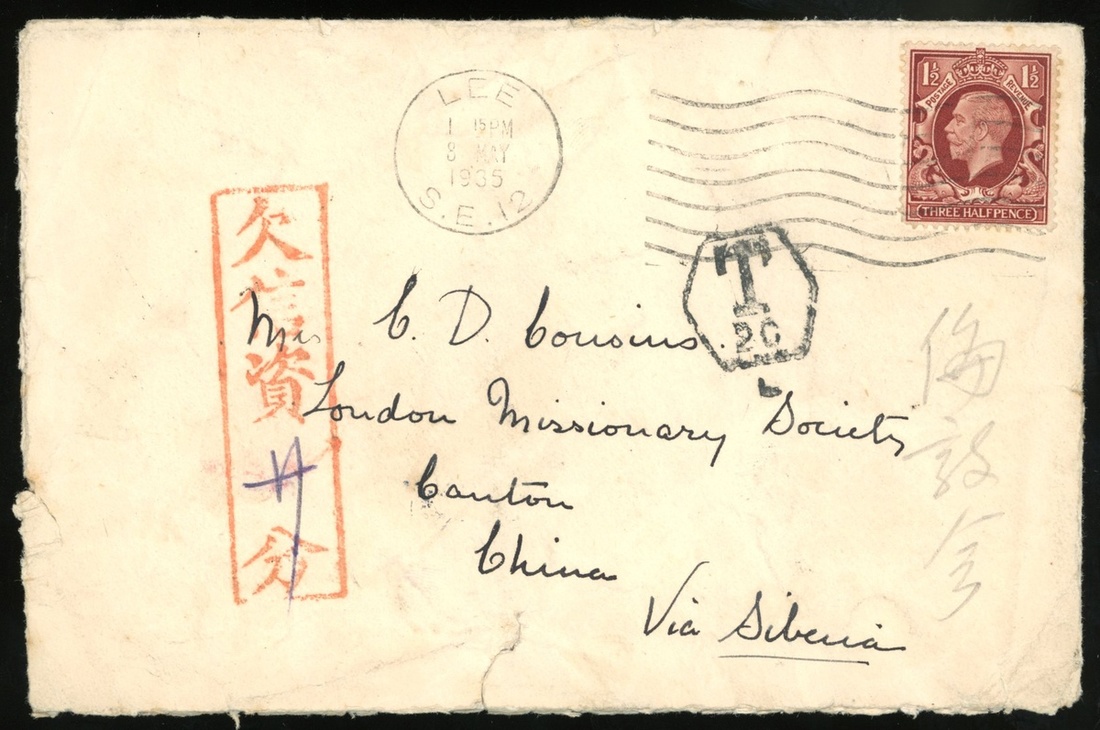 LEE
1 15PM
8 MAY
1935
S.E.12
1½ 1½
POSTAGE REVENUE
THREE HALFPENCE
T
20
欠信資廿分
C. D. Cousins.
London Missionary Society
Canton
China
Via Siberia
倫敦会